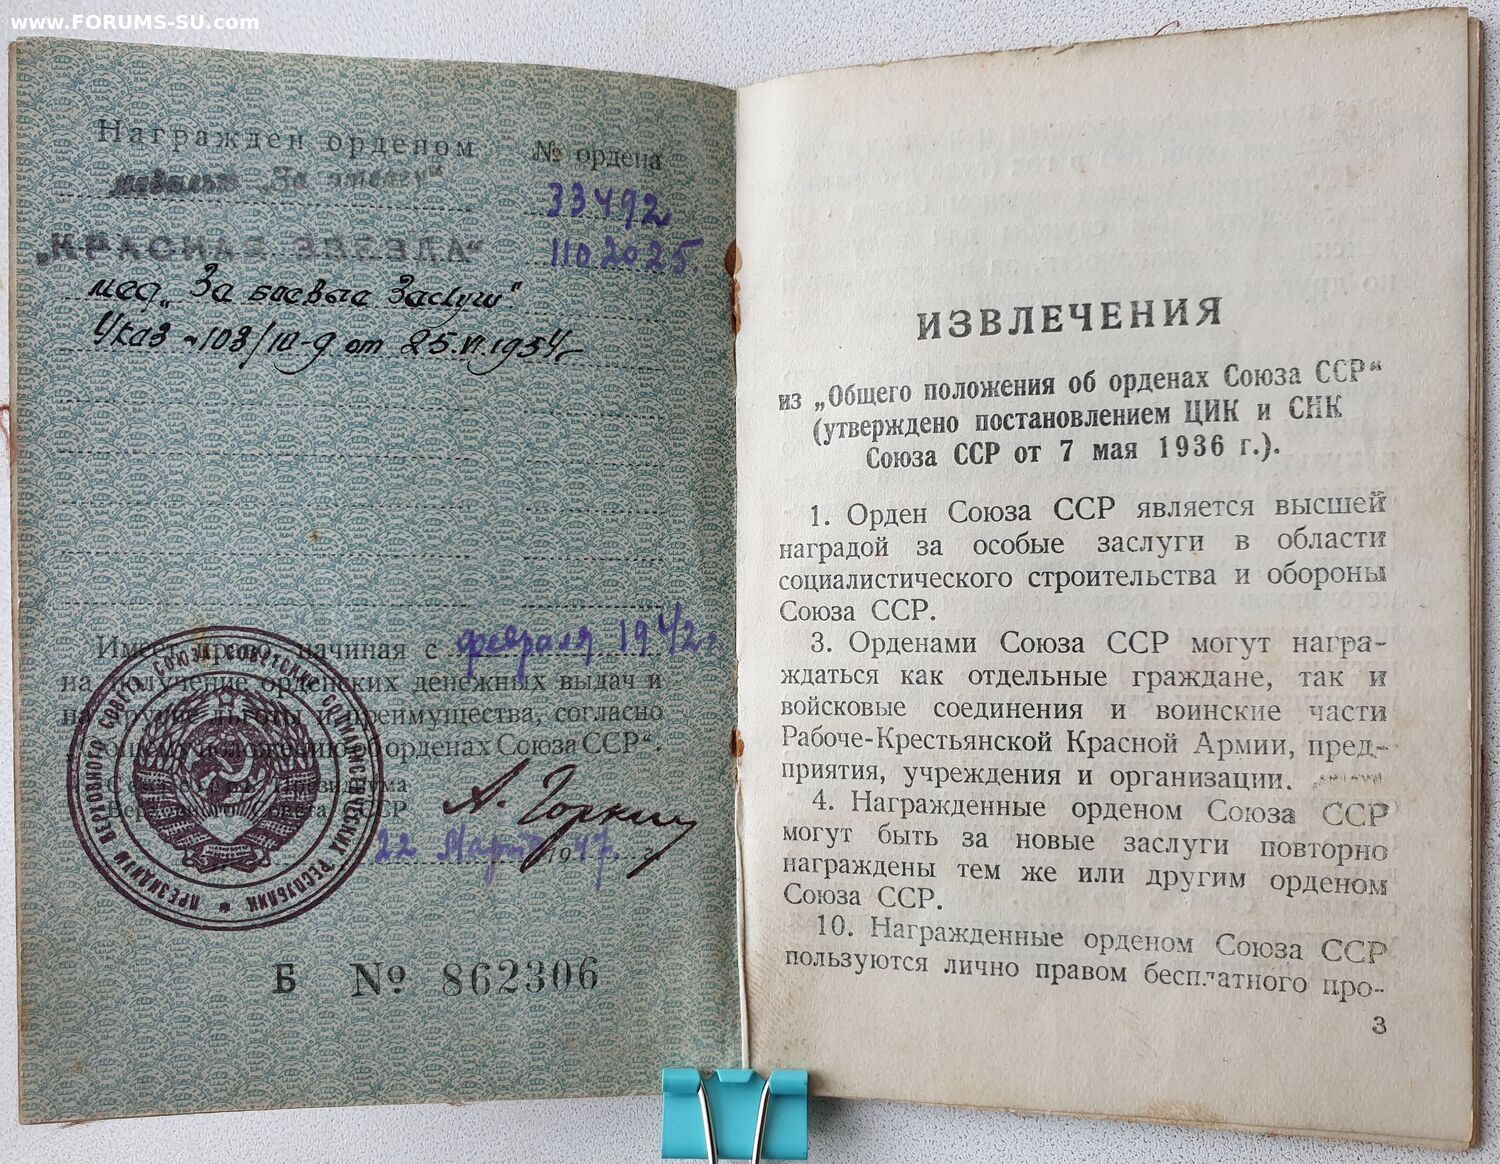 www.FORUMS-SU.com
Награжден орденом № ордена
медалью „За отвагу" 33492
„КРАСНАЯ ЗВЕЗДА" 1102025.
мед. „За боевые Заслуги"
Указ №108/10-д от 25.VI.1954
Имеет право, начиная с февраля 1942 г.
на получение орденских денежных выдач и
на другие льготы и преимущества, согласно
„Общему положению об орденах Союза ССР".
Секретарь Президиума
Верховного Совета СССР А. Горкин
22 Марта 1947. г.
ПРЕЗИДИУМ ВЕРХОВНОГО СОВЕТА СОЮЗА СОВЕТСКИХ СОЦИАЛИСТИЧЕСКИХ РЕСПУБЛИК
Б № 862306
ИЗВЛЕЧЕНИЯ
из „Общего положения об орденах Союза ССР"
(утверждено постановлением ЦИК и СНК
Союза ССР от 7 мая 1936 г.).
1. Орден Союза ССР является высшей
наградой за особые заслуги в области
социалистического строительства и обороны
Союза ССР.
3. Орденами Союза ССР могут награ-
ждаться как отдельные граждане, так и
войсковые соединения и воинские части
Рабоче-Крестьянской Красной Армии, пред-
приятия, учреждения и организации.
4. Награжденные орденом Союза ССР
могут быть за новые заслуги повторно
награждены тем же или другим орденом
Союза ССР.
10. Награжденные орденом Союза ССР
пользуются лично правом бесплатного про-
3